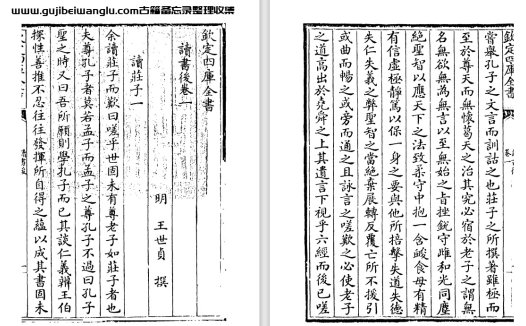 www.gujibeiwanglu.com古籍备忘录整理收集
欽定四庫全書
讀書後卷一
明 王世貞 撰
讀莊子一
余讀莊子而歎曰嗟乎世固未有尊老子如莊子者也
夫尊孔子者莫若孟子而孟子之尊孔子不過曰孔子
聖之時又曰吾所願則學孔子而已其談仁義辨王伯
探性善推不忍往往發揮所自得之蘊以成其書固未
欽定四庫全書
卷一
嘗舉孔子之文言而訓詁之也莊子之所撰著雖極而
至於尊天而無懷葛天之治其究必宿於老子之謂無
名無欲無為無言以至無始之旨挫銳守雌和光同塵
絕聖智以應天下之法致柔守中抱一含食母有精
有信虛極靜篤以保一身之要與他所掊擊失道失德
失仁失義之弊聖智之當絕棄展轉反覆亡所不援引
或曲而暢之或旁而通之且詠言之嗟歎之必使老子
之道高出於堯舜之上其遺言下視乎六經而後已嗟